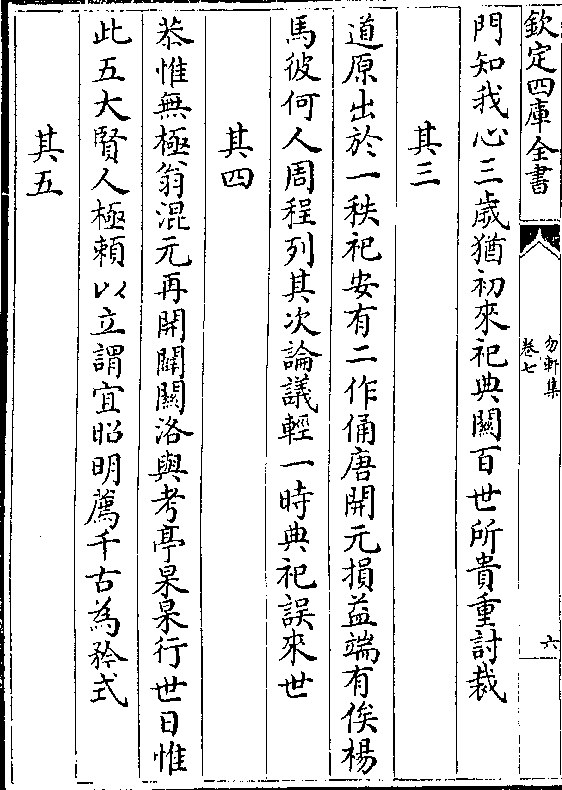 欽定四庫全書
勿軒集
卷七
六
門知我心三歲猶初來祀典關百世所貴重討裁
其三
道原出於一秩祀安有二作俑唐開元損益端有俟楊
馬彼何人周程列其次論議輕一時典祀誤來世
其四
恭惟無極翁混元再開闢關洛與考亭杲杲行世日惟
此五大賢人極賴以立謂宜昭明薦千古為矜式
其五